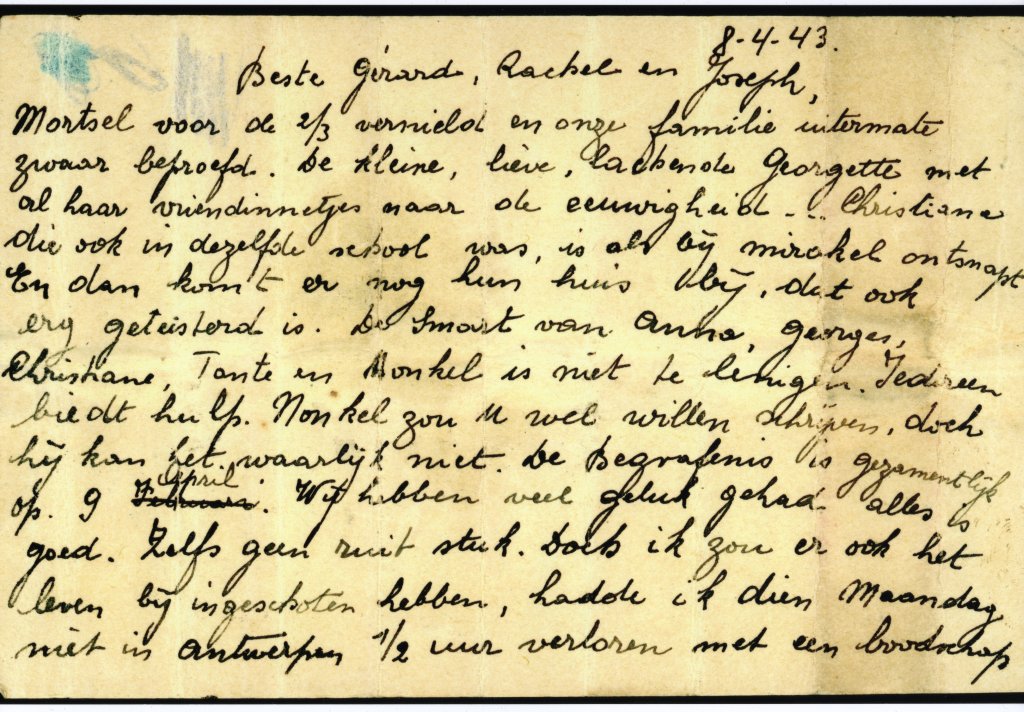 8-4-43.
Beste Gérard, Rachel en Joseph,
Mortsel voor de 2/3 vernield en onze familie uitermate
zwaar beproefd. De kleine, lieve, lachende Georgette met
al haar vriendinnetjes naar de eeuwigheid... Christiane
die ook in dezelfde school was, is als bij mirakel ontsnapt
En dan komt er nog hun huis bij, dat ook
erg geteisterd is. De Smart van Anna, Georges,
Christiane, Tante en Nonkel is niet te lenigen. Iedereen
biedt hulp. Nonkel zou U wel willen schrijven, doch
hij kan het waarlijk niet. De Begrafenis is gezamentlijk
op. 9 ~~Februari~~ April. Wij hebben veel geluk gehad alles is
goed. Zelfs geen ruit stuk. Doch ik zou er ook het
leven bij ingeschoten hebben, hadde ik dien Maandag
niet in Antwerpen 1/2 uur verloren met een boodschap